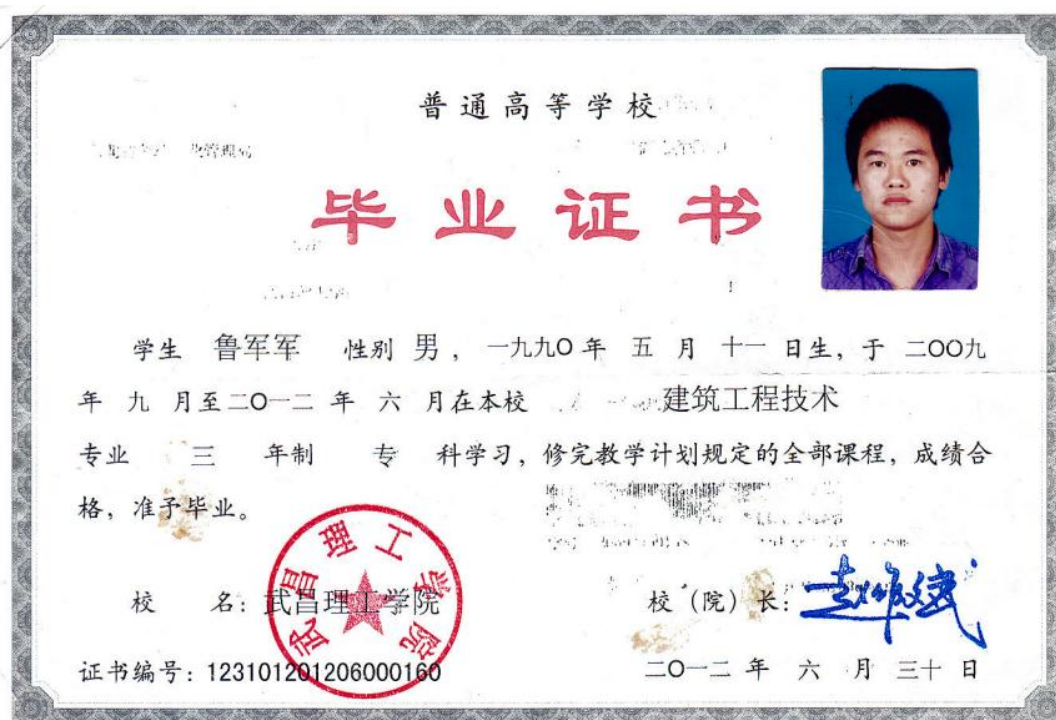 普通高等学校
毕业证书
学生 鲁军军 性别 男，一九九〇年 五 月 十一 日生，于 二〇〇九
年 九 月至二〇一二 年 六 月在本校 建筑工程技术
专业 三 年制 专 科学习，修完教学计划规定的全部课程，成绩合
格，准予毕业。
武昌理工学院
校 名：武昌理工学院 校（院）长：
证书编号：123101201206000160 二〇一二 年 六 月 三十 日